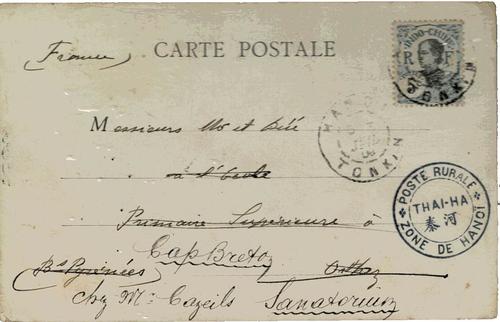 (France)
CARTE POSTALE
INDO-CHINE
R F
HANOI
TONKIN
TONKIN
Messieurs et
à d'École
Primaire Supérieure à
Capbreton
Bses Pyrénées Orthez
chez Mr Cazeils Sanatorium
POSTE RURALE
THAI-HA
泰河
ZONE DE HANOÏ